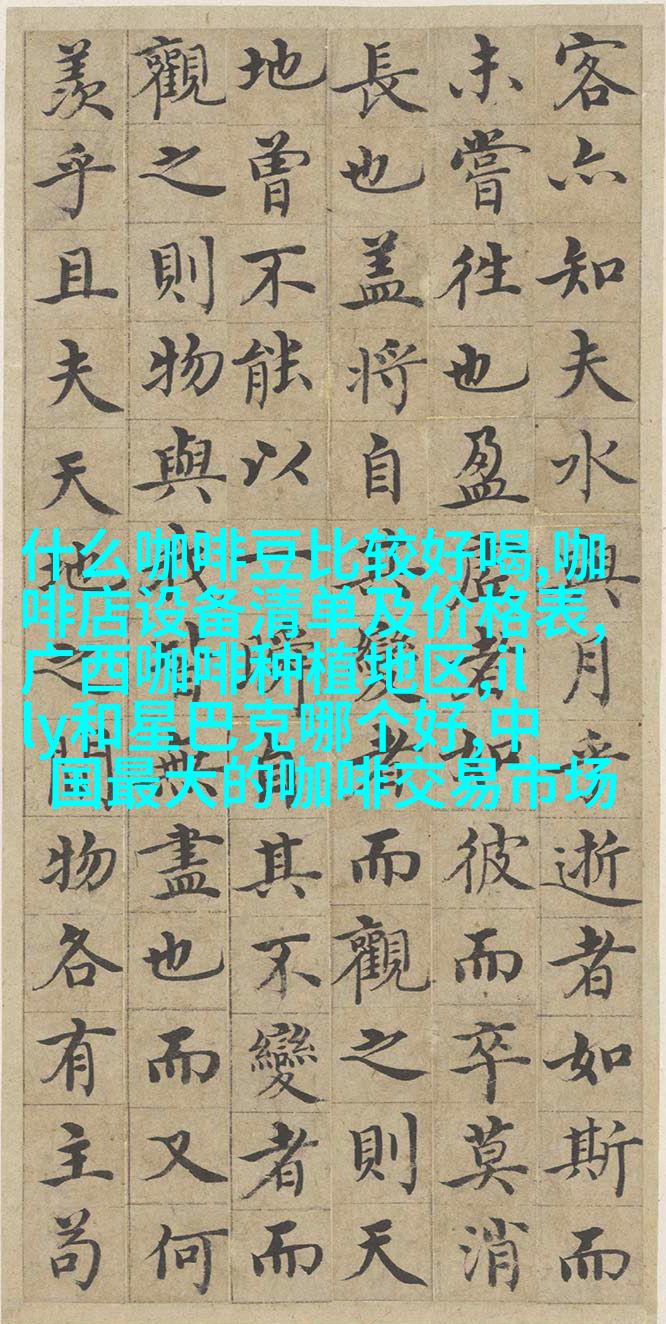 客亦知夫水與月乎逝者如斯而
未嘗往也盈虛者如彼而卒莫消
長也盖將自其變者而觀之則天
地曾不能以一瞬自其不變者而
觀之則物與我皆無盡也而又何
羨乎且夫天地之間物各有主苟
什么咖啡豆比较好喝,咖
啡店设备清单及价格表,
广西咖啡种植地区,il
ly和星巴克哪个好,中
国最大的咖啡交易市场